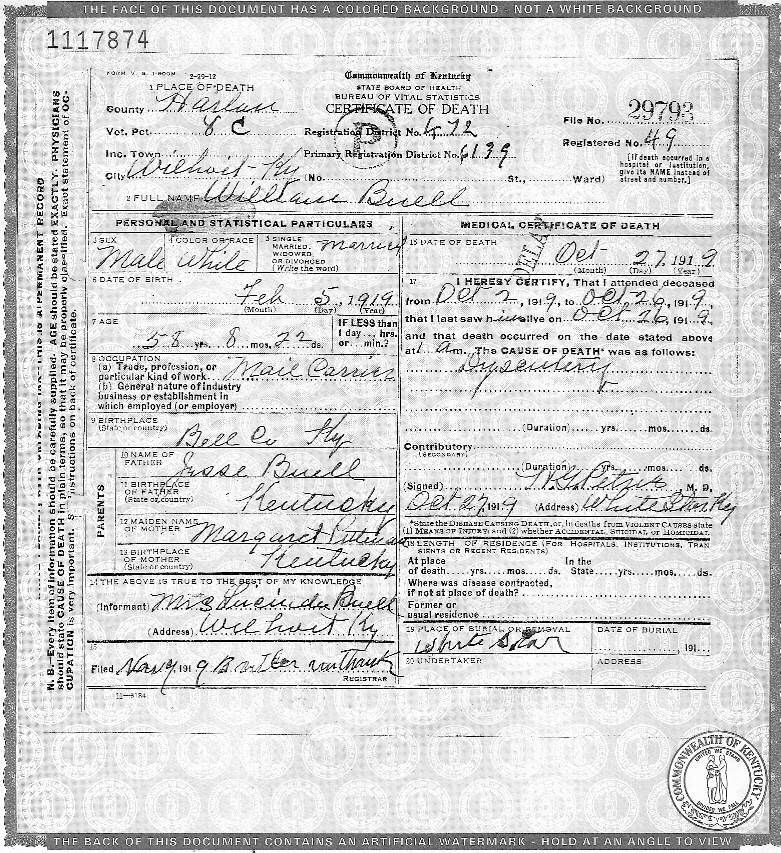 THE FACE OF THIS DOCUMENT HAS A COLORED BACKGROUND - NOT A WHITE BACKGROUND
1117874
FORM V. S. 1-500M 2-29-12
1 PLACE OF DEATH
County Harlan
Vot. Pct. 8 C
Inc. Town
City Wilhoit Ky (No. St., Ward)
Commonwealth of Kentucky
STATE BOARD OF HEALTH
BUREAU OF VITAL STATISTICS
CERTIFICATE OF DEATH
Registration District No. 672
Primary Registration District No. 6139
P
File No. 29793
Registered No. 49
[If death occurred in a
hospital or institution,
give its NAME instead of
street and number.]
2 FULL NAME William Buell
PERSONAL AND STATISTICAL PARTICULARS
3 SEX Male
4 COLOR OR RACE White
5 SINGLE
MARRIED, Married
WIDOWED
OR DIVORCED
(Write the word)
6 DATE OF BIRTH
Feb 5, 1919
(Month) (Day) (Year)
7 AGE
58 yrs. 8 mos. 22 ds.
IF LESS than
1 day... hrs.
or... min.?
8 OCCUPATION
(a) Trade, profession, or
particular kind of work Mail Carrier
(b) General nature of industry
business or establishment in
which employed (or employer)
9 BIRTHPLACE
(State or country) Bell Co Ky
PARENTS
10 NAME OF
FATHER Jesse Buell
11 BIRTHPLACE
OF FATHER
(State or country) Kentucky
12 MAIDEN NAME
OF MOTHER Margaret
13 BIRTHPLACE
OF MOTHER
(State or country) Kentucky
14 THE ABOVE IS TRUE TO THE BEST OF MY KNOWLEDGE
(Informant) Mrs Lucinda Buell
(Address) Wilhoit Ky
15
Filed Nov 9 191 9
REGISTRAR
11-3184
MEDICAL CERTIFICATE OF DEATH
DELAY
16 DATE OF DEATH
Oct 27 1919
(Month) (Day) (Year)
17 I HEREBY CERTIFY, That I attended deceased
from Oct 2, 1919, to Oct 26, 1919,
that I last saw him alive on Oct 26, 1919
and that death occurred on the date stated above
at 1 am. The CAUSE OF DEATH* was as follows:
Dysentery
(Duration) yrs. mos. ds.
Contributory
(SECONDARY)
(Duration) yrs. mos. ds.
(Signed) M. D.
Oct 27 1919 (Address) White Star Ky
*State the DISEASE CAUSING DEATH, or, in deaths from VIOLENT CAUSES state
(1) MEANS OF INJURY; and (2) whether ACCIDENTAL, SUICIDAL or HOMICIDAL.
18 LENGTH OF RESIDENCE (FOR HOSPITALS, INSTITUTIONS, TRAN
SIENTS OR RECENT RESIDENTS)
At place In the
of death yrs. mos. ds. State yrs. mos. ds.
Where was disease contracted,
if not at place of death?
Former or
usual residence
19 PLACE OF BURIAL OR REMOVAL
White Star
DATE OF BURIAL
191
20 UNDERTAKER
ADDRESS
N. B.—Every item of information should be carefully supplied. AGE should be stated EXACTLY. PHYSICIANS
should state CAUSE OF DEATH in plain terms, so that it may be properly classified. Exact statement of OC-
CUPATION is very important. instructions on back of certificate.
COMMONWEALTH OF KENTUCKY
UNITED WE STAND
DIVIDED WE FALL
THE BACK OF THIS DOCUMENT CONTAINS AN ARTIFICIAL WATERMARK - HOLD AT AN ANGLE TO VIEW